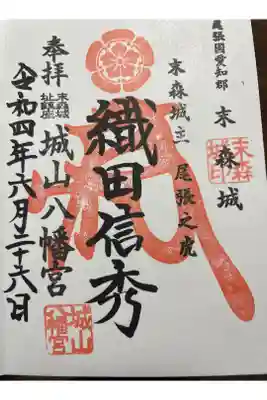 尾張国愛知郡 末森城
末森城印
末森城主 尾張之虎
織田信秀
奉拝
末森城址鎮座
城山八幡宮
城山八幡宮
令和四年六月二十六日